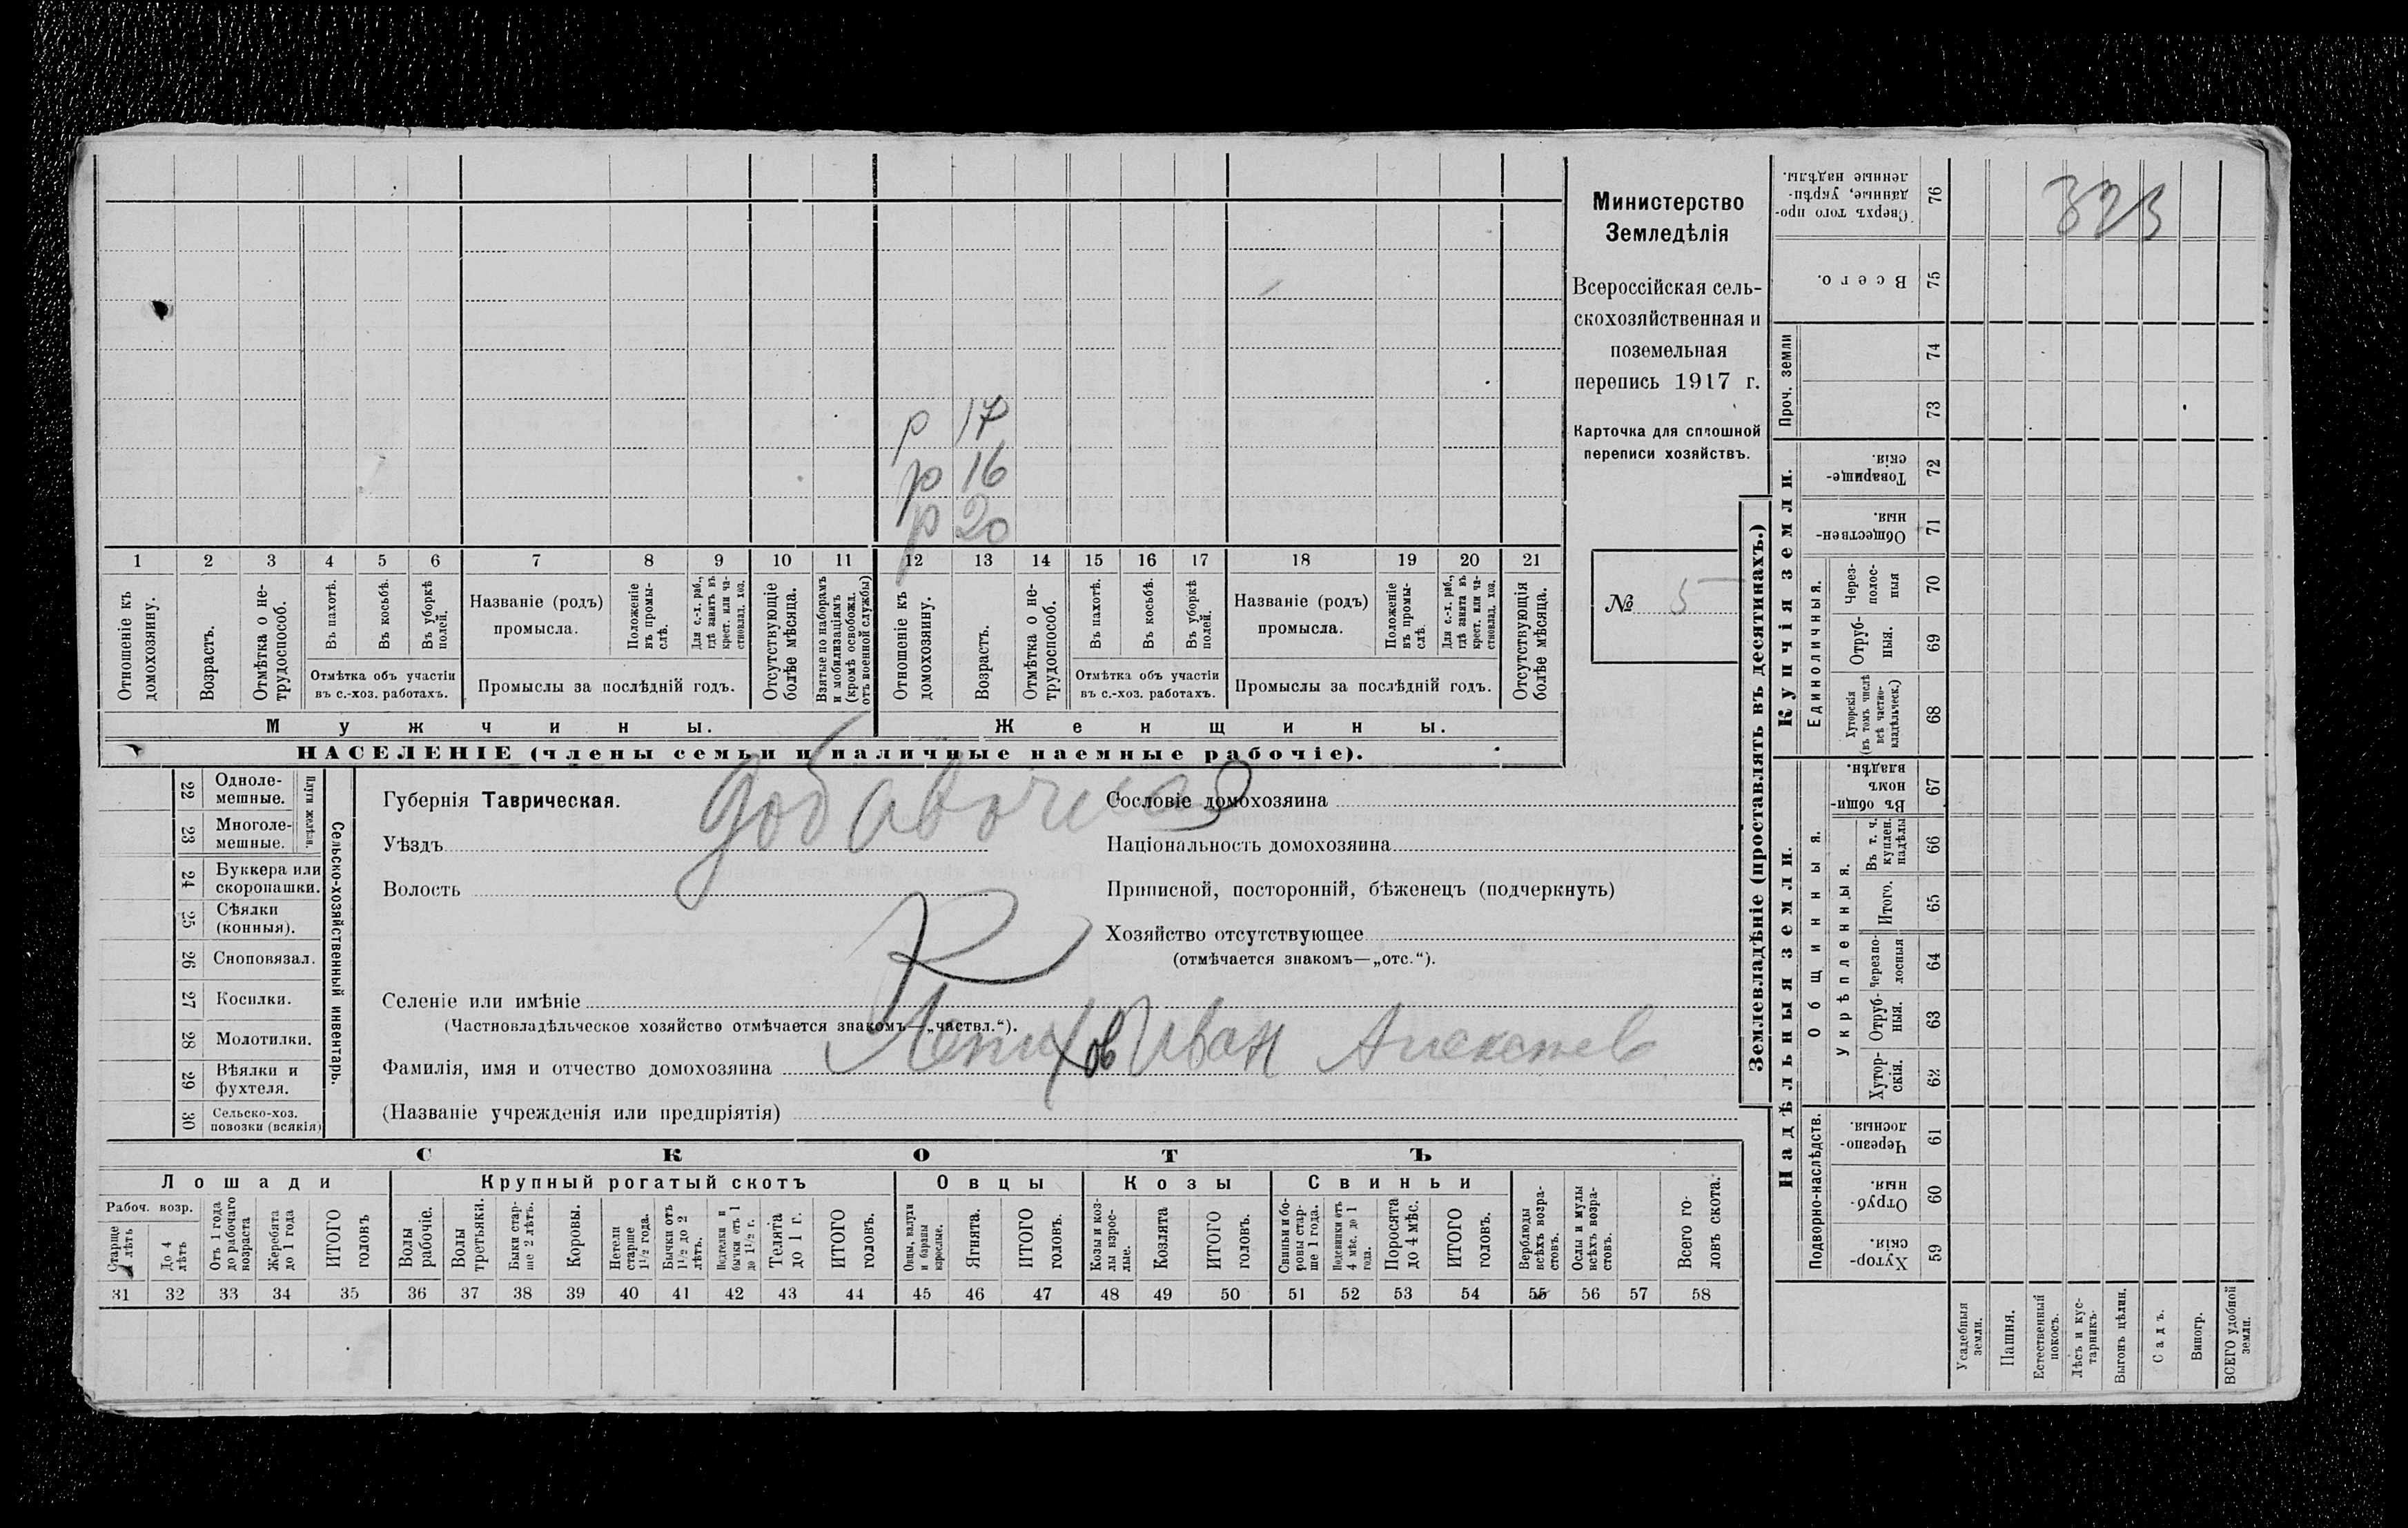 323
р 17
р 16
р 20
1 2 3 4 5 6 7 8 9 10 11 12 13 14 15 16 17 18 19 20 21
Отношеніе къ домохозяину.
Возрастъ.
Отмѣтка о нетрудоспособ.
Въ пахотѣ.
Въ косьбѣ.
Въ уборкѣ полей.
Отмѣтка объ участіи
въ с.-хоз. работахъ.
Названіе (родъ)
промысла.
Положеніе въ промыслѣ.
Для с.-х. раб., гдѣ занятъ въ крест. или частновлад. хоз.
Промыслы за послѣдній годъ.
Отсутствующіе болѣе мѣсяца.
Взятые по наборамъ и мобилизаціямъ (кромѣ освобожд. отъ военной службы)
Отношеніе къ домохозяину.
Возрастъ.
Отмѣтка о нетрудоспособ.
Въ пахотѣ.
Въ косьбѣ.
Въ уборкѣ полей.
Отмѣтка объ участіи
въ с.-хоз. работахъ.
Названіе (родъ)
промысла.
Положеніе въ промыслѣ.
Для с.-х. раб., гдѣ занята въ крест. или частновлад. хоз.
Промыслы за послѣдній годъ.
Отсутствующія болѣе мѣсяца.
Мужчины.
Женщины.
НАСЕЛЕНІЕ (члены семьи и наличные наемные рабочіе).
Министерство
Земледѣлія
Всероссійская сель-
скохозяйственная и
поземельная
перепись 1917 г.
Карточка для сплошной
переписи хозяйствъ.
№ 5
добавочная
Губернія Таврическая.
Уѣздъ
Волость
Селеніе или имѣніе
(Частновладѣльческое хозяйство отмѣчается знакомъ—„частвл.“).
Фамилія, имя и отчество домохозяина Иван Алексѣев
(Названіе учрежденія или предпріятія)
Сословіе домохозяина
Національность домохозяина
Приписной, посторонній, бѣженецъ (подчеркнуть)
Хозяйство отсутствующее
(отмѣчается знакомъ—„отс.“).
Сельско-хозяйственный инвентарь.
Плуги желѣзн.
22 Одноле-
мешные.
23 Многоле-
мешные.
24 Буккера или
скоропашки.
25 Сѣялки
(конныя).
26 Сноповязал.
27 Косилки.
28 Молотилки.
29 Вѣялки и
фухтеля.
30 Сельско-хоз.
повозки (всякія)
СКОТЪ
Лошади
Крупный рогатый скотъ
Овцы
Козы
Свиньи
Рабоч. возр.
Старше 4 лѣтъ
До 4 лѣтъ
Отъ 1 года до рабочаго возраста
Жеребята до 1 года
ИТОГО головъ
Волы рабочіе.
Волы третьяки.
Быки старше 2 лѣтъ.
Коровы.
Нетели старше 1½ года.
Бычки отъ 1½ до 2 лѣтъ.
Подтелки и бычки отъ 1 до 1½ г.
Телята до 1 г.
ИТОГО головъ.
Овцы, валухи и бараны взрослые.
Ягнята.
ИТОГО головъ.
Козы и козлы взрослые.
Козлята
ИТОГО головъ.
Свиньи и боровы старше 1 года.
Подсвинки отъ 4 мѣс. до 1 года.
Поросята до 4 мѣс.
ИТОГО головъ.
Верблюды всѣхъ возрастовъ.
Ослы и мулы всѣхъ возрастовъ.
Всего головъ скота.
31 32 33 34 35 36 37 38 39 40 41 42 43 44 45 46 47 48 49 50 51 52 53 54 55 56 57 58
Землевладѣніе (проставлять въ десятинахъ.)
Надѣльныя земли.
Купчія земли.
Проч. земли
Подворно-наслѣдств.
Общинныя.
Укрѣпленныя.
Единоличныя.
Сверхъ того проданные, укрѣпленные надѣлы. 76
Всего. 75
74
73
Товарищескія. 72
Общественныя. 71
Черезполосныя 70
Отрубныя. 69
Хуторскія (въ томъ числѣ всѣ частновладѣльческ.) 68
Въ общиномъ владѣн. 67
Въ т. ч. куплен. надѣлы 66
Итого. 65
Черезполосныя 64
Отрубныя. 63
Хуторскія. 62
Черезполосныя. 61
Отрубныя. 60
Хуторскія. 59
Усадебныя земли.
Пашня.
Естественный покосъ.
Лѣсъ и кустарникъ.
Выгонъ цѣлин.
Садъ.
Виногр.
ВСЕГО удобной земли.